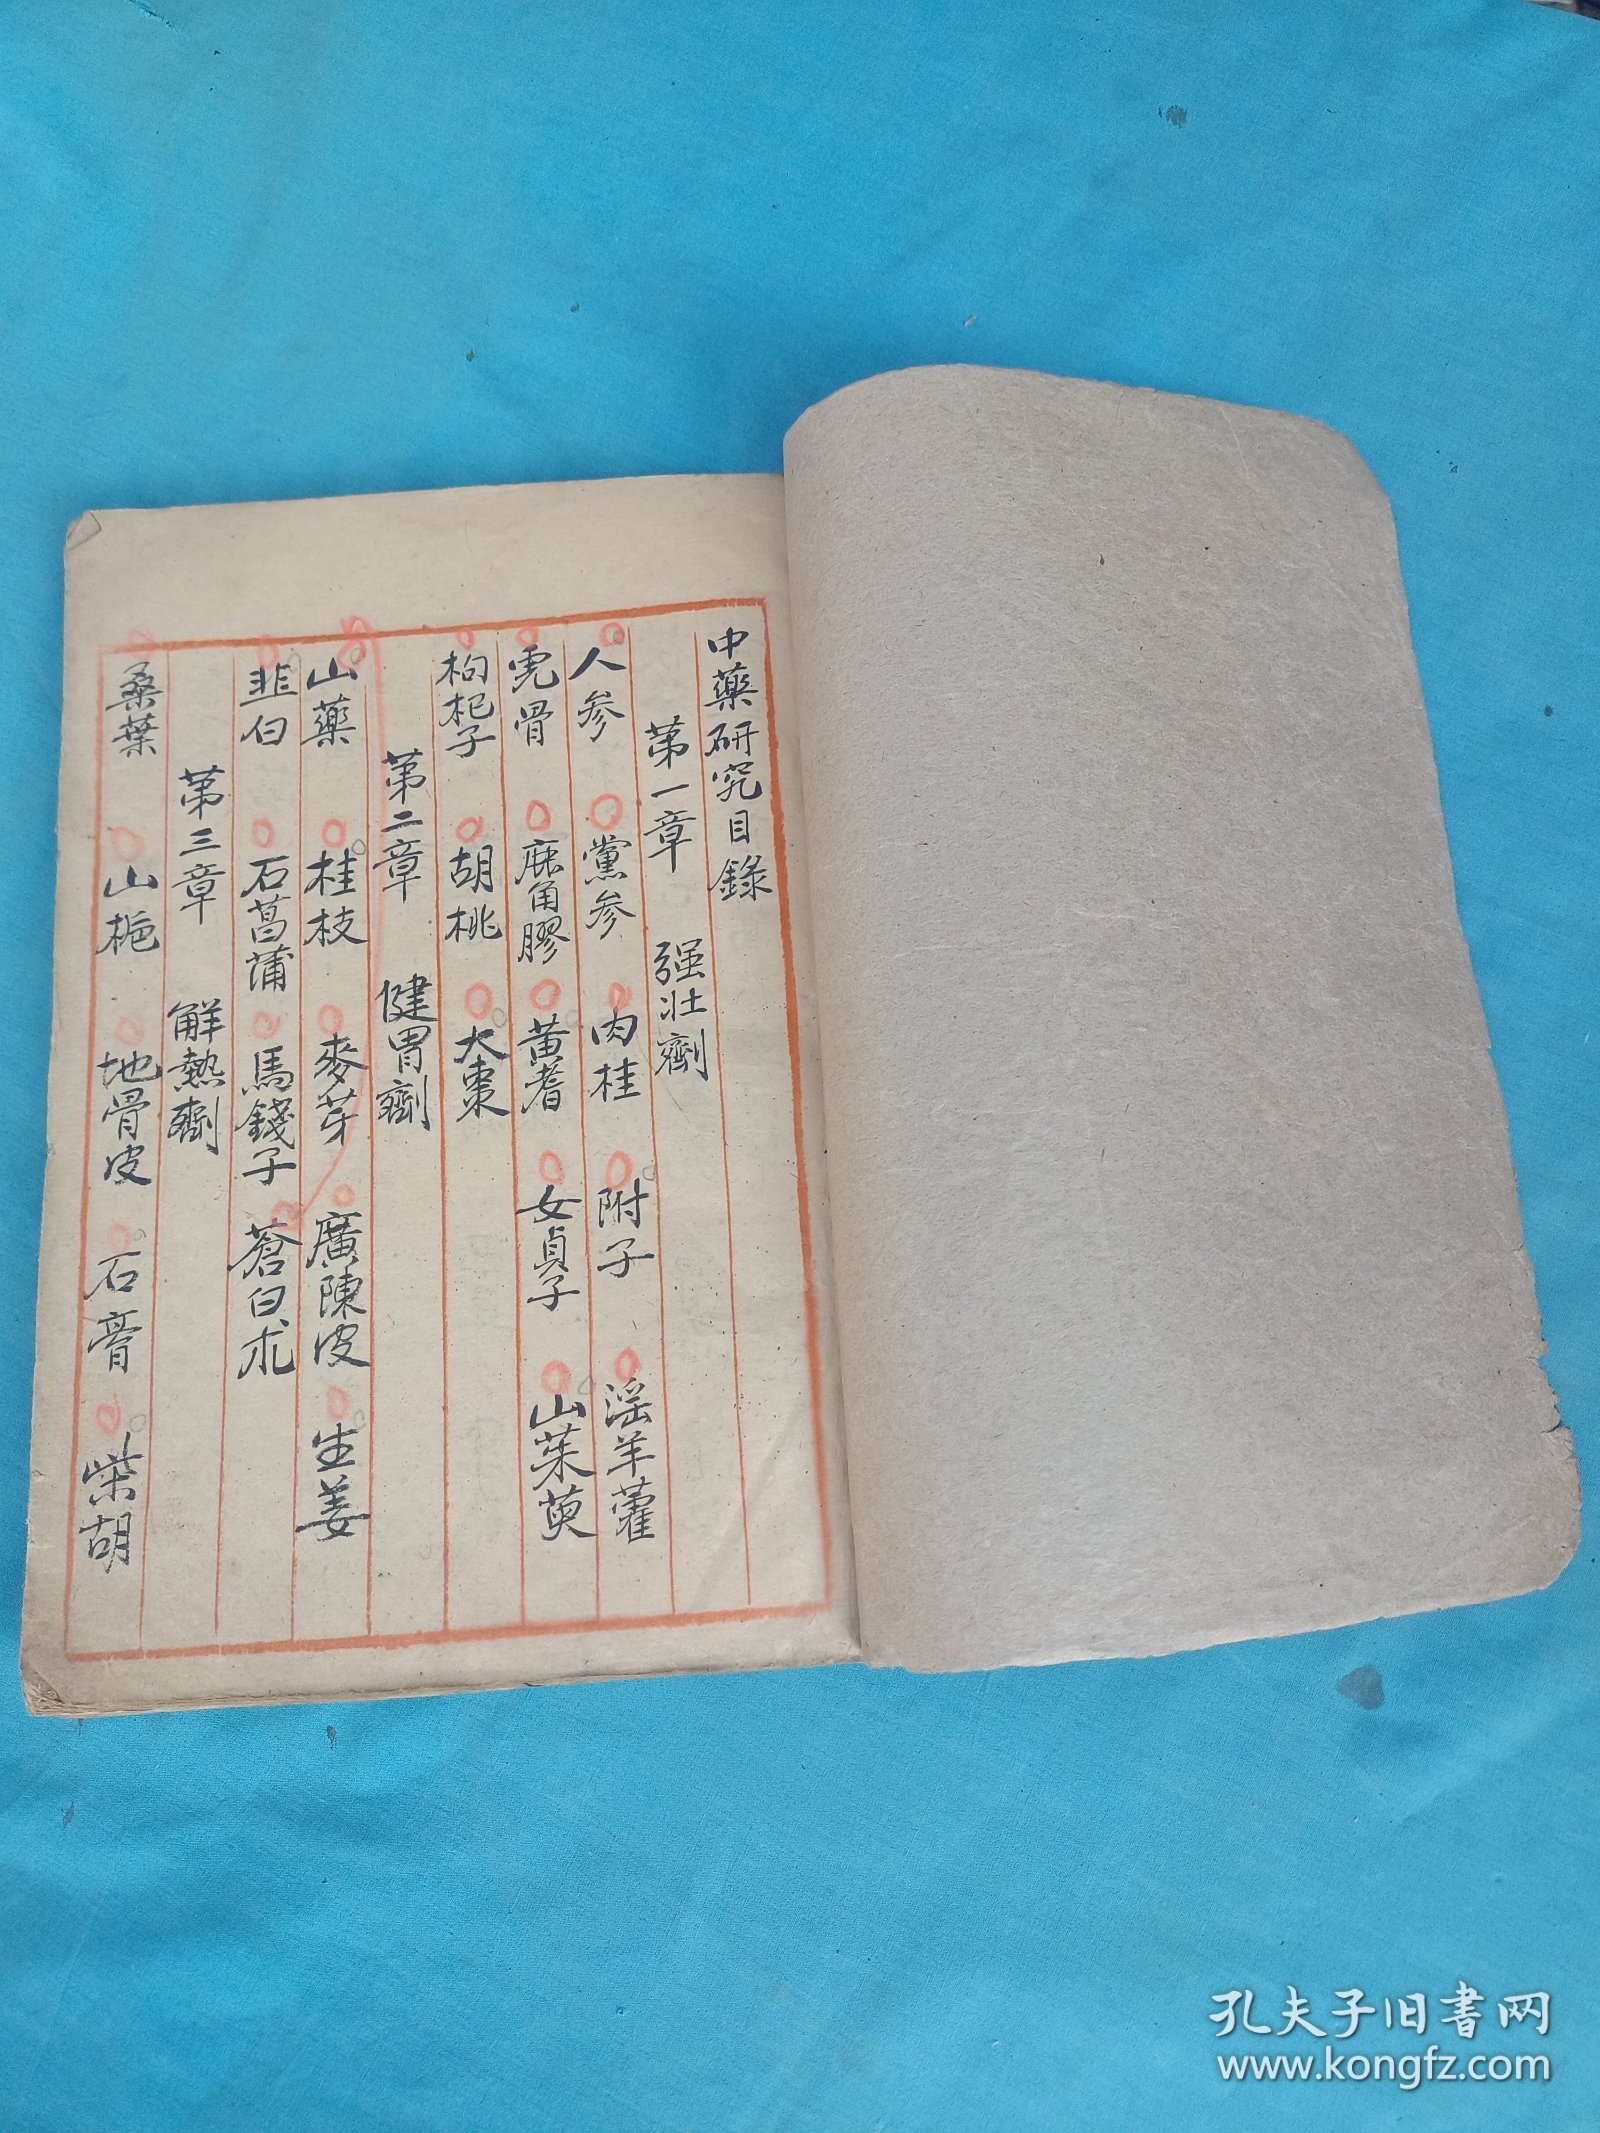 中藥研究目錄
第一章 强壯劑
人参 黨参 肉桂 附子 淫羊藿
虎骨 鹿角膠 黄耆 女貞子 山茱萸
枸杞子 胡桃 大棗
第二章 健胃劑
山藥 桂枝 麥芽 廣陳皮 生姜
韭白 石菖蒲 馬錢子 蒼白朮
第三章 解熱劑
桑葉 山栀 地骨皮 石膏 柴胡
孔夫子旧书网
www.kongfz.com